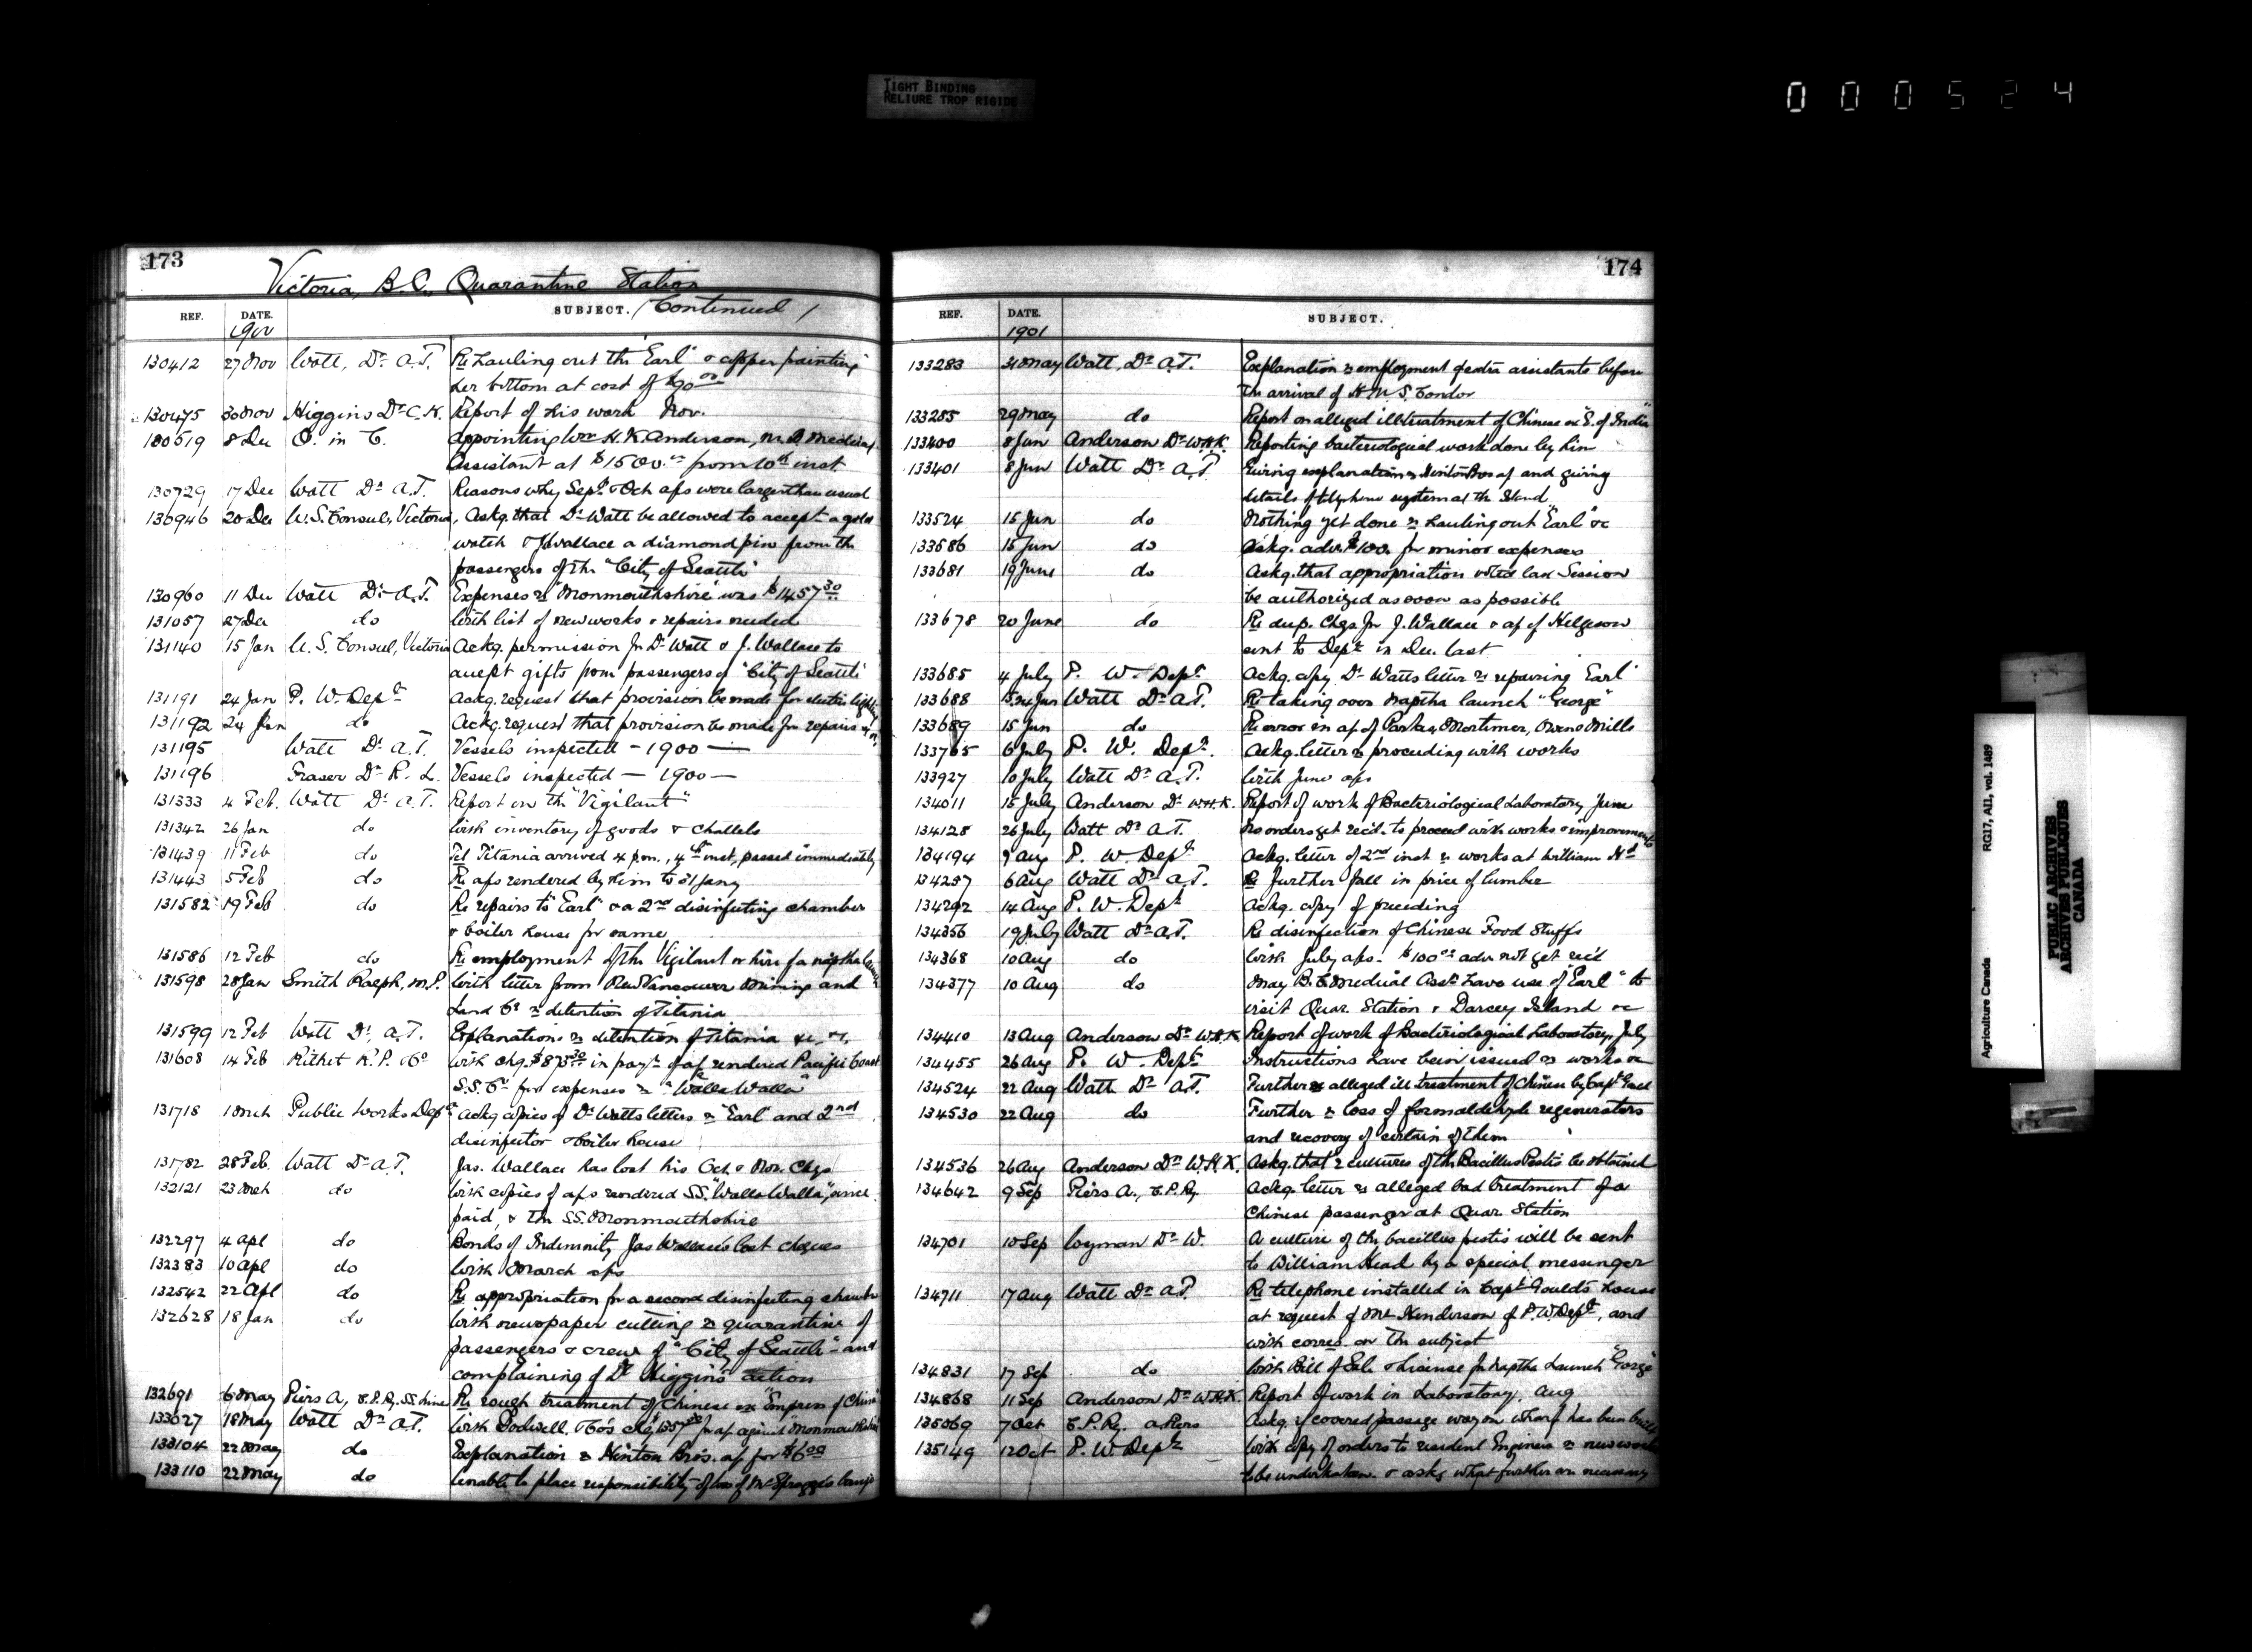 TIGHT BINDING
RELIURE TROP RIGIDE
000524
173
Victoria, B.C., Quarantine Station
REF. DATE. SUBJECT. (Continued)
1900
130412 27 Nov Watt, Dr. A.T. Re hauling out the "Earl" & copper painting
her bottom at cost of $90.00
130475 30 Nov Higgins Dr. C.K. Report of his work Nov.
130519 8 Dec O. in C. Appointing Wm H.K. Anderson, M.D. Medical
Assistant at $1500.00 from 10th inst.
130729 17 Dec Watt Dr. A.T. Reasons why Sept. & Oct a/cs were larger than usual
130946 20 Dec U.S. Consul, Victoria, Askg. that Dr. Watt be allowed to accept a gold
watch & J. Wallace a diamond pin from the
passengers of the "City of Seattle"
130960 11 Dec Watt Dr. A.T. Expenses re "Monmouthshire" was $1457.30
131057 27 Dec do With list of new works & repairs needed
131140 15 Jan U.S. Consul, Victoria Ackg. permission for Dr. Watt & J. Wallace to
accept gifts from passengers of "City of Seattle"
131191 24 Jan P. W. Dept. Ackg. request that provision be made for electric lighting
131192 24 Jan do Ackg. request that provision be made for repairs &c.
131195 Watt Dr. A.T. Vessels inspected - 1900 -
131196 Fraser Dr. R. L. Vessels inspected - 1900 -
131333 4 Feb. Watt Dr. A.T. Report on the "Vigilant"
131342 26 Jan do With inventory of goods & chattels
131439 11 Feb do Tel Titania arrived 4 p.m., 4th inst, passed immediately
131443 5 Feb do Re a/cs rendered by him to 31 Jany
131582 19 Feb do Re repairs to "Earl" & a 2nd disinfecting chamber
& boiler house for same
131586 12 Feb do Re employment of the Vigilant or hire of a naptha launch
131598 28 Jan Smith Ralph, M.P. With letter from New Vancouver Mining and
Land Co. re detention of Titania
131599 12 Feb Watt Dr. A.T. Explanations re detention of Titania &c. &c.
131608 14 Feb Rithet R.P. & Co With chq. $875.30 in payt. of a/c rendered Pacific Coast
S.S. Co. for expenses re "Walla Walla"
131718 1 Mch Public Works Dept. Ackg copies of Dr. Watts letters re "Earl" and 2nd
disinfector & boiler house
131782 28 Feb. Watt Dr. A.T. Jas. Wallace has lost his Oct. & Nov. Chqs
132121 23 Mch do With copies of a/cs rendered SS. "Walla Walla", since
paid, & the SS. Monmouthshire
132297 4 Apl do Bonds of Indemnity Jas Wallace's lost cheques
132383 10 Apl do With March a/cs
132542 22 Apl do Re appropriation for a second disinfecting chamber
132628 18 Jan do With newspaper cutting re quarantine of
passengers & crew of "City of Seattle" and
complaining of Dr. Higgins action
132691 6 May Piers A, C.P.Ry. SS. Line Re rough treatment of Chinese ex "Empress of China"
133027 18 May Watt Dr. A.T. With Dodwell, & Co's chq for a/c against "Monmouthshire"
133104 22 May do Explanation re Hinton Bros. a/c for
133110 22 May do Unable to place responsibility of loss of Mr Spraggs banjo
174
REF. DATE. SUBJECT.
1901
133283 31 May Watt, Dr. A.T. Explanation re employment of extra assistants before
the arrival of H.M.S. Condor
133285 29 May do Report on alleged illtreatment of Chinese ex "E. of India"
133400 8 Jun Anderson Dr. W.H.K. Reporting bacteriological work done by him
133401 8 Jun Watt Dr. A.T. Giving explanation re Hinton Bros a/c and giving
details of telephone system at the Island
133524 15 Jun do Nothing yet done re hauling out "Earl" &c
133586 15 Jun do Askg. adv. $100. for minor expenses
133681 19 June do Askg. that appropriation voted last Session
be authorized as soon as possible
133678 20 June do Re dup. Chqs for J. Wallace & a/c of Helgeson
sent to Dept. in Dec. last
133685 4 July P. W. Dept. Ackg. copy Dr. Watts letter re repairing "Earl"
133688 24 Jun Watt Dr. A.T. Re taking over naptha launch "Gorge"
133689 15 Jun do Re error in a/c of Parkes, Mortimer, Owens Mills
133765 6 July P. W. Dept. Ackg. letter re proceeding with works
133927 10 July Watt Dr. A.T. With June a/cs
134011 15 July Anderson Dr. W.H.K. Report of work of Bacteriological Laboratory June
134128 26 July Watt Dr. A.T. No orders yet recd. to proceed with works & improvements
134194 9 Aug P. W. Dept. Ackg. letter of 2nd inst re works at William Hd
134257 6 Aug Watt Dr. A.T. Re further fall in price of lumber
134292 14 Aug P. W. Dept. Ackg. copy of preceding
134356 19 July Watt Dr. A.T. Re disinfection of Chinese Food Stuffs
134368 10 Aug do With July a/cs. $100.00 adv. not yet rec'd
134377 10 Aug do May B.C. Medical Assn. have use of "Earl" to
visit Quar. Station & Darcey Island &c
134410 13 Aug Anderson Dr. W.H.K Report of work of Bacteriological Laboratory, July
134455 26 Aug P. W. Dept. Instructions have been issued re works &c
134524 22 Aug Watt Dr. A.T. Further re alleged ill treatment of Chinese by Capt.
134530 22 Aug do Further re loss of formaldehyde regenerators
and recovery of certain of them
134536 26 Aug Anderson Dr. W.H.K. Askg. that 2 cultures of the Bacillus Pestis be obtained
134642 9 Sep Piers A., C.P.Ry Ackg. letter re alleged bad treatment of a
Chinese passenger at Quar. Station
134701 10 Sep Wyman Dr. W. A culture of the bacillus pestis will be sent
to William Head by a special messenger
134711 17 Aug Watt Dr. A.T. Re telephone installed in Capt. Gould's house
at request of Mr Henderson of P.W. Dept., and
with corres. on the subject
134831 17 Sep do With Bill of Sale & License for naptha launch "Gorge"
134868 11 Sep Anderson Dr. W.H.K. Report of work in Laboratory. Aug
135069 7 Oct C.P.Ry. A Piers Askg. if covered passage way on wharf has been built
135149 12 Oct P. W. Dept. With copy of orders to resident Engineer re new work
to be undertaken & asks what further are necessary
Agriculture Canada RG17, AII, vol. 1489
PUBLIC ARCHIVES
ARCHIVES PUBLIQUES
CANADA